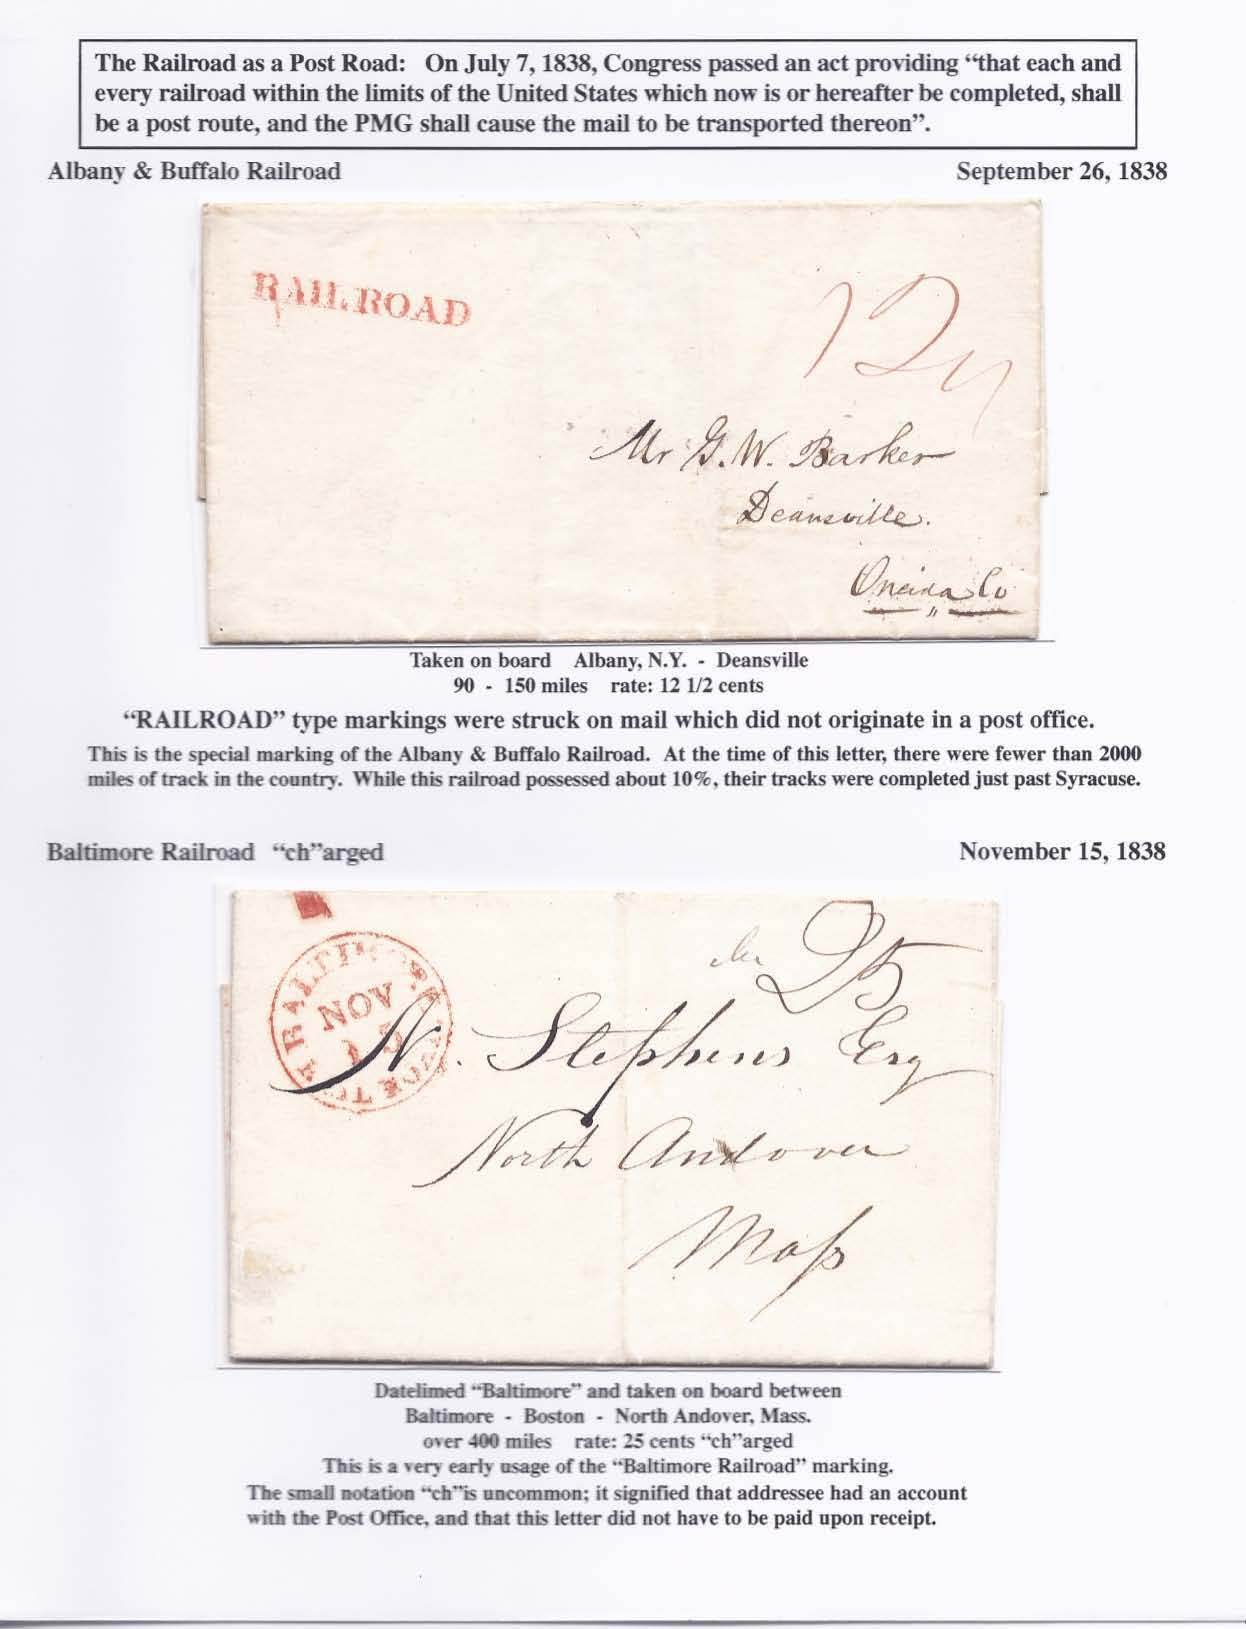 The Railroad as a Post Road: On July 7, 1838, Congress passed an act providing “that each and
every railroad within the limits of the United States which now is or hereafter be completed, shall
be a post route, and the PMG shall cause the mail to be transported thereon”.
Albany & Buffalo Railroad September 26, 1838
RAILROAD
12½
Mr G. W. Barker
Deansville.
Oneida Co
Taken on board Albany, N.Y. - Deansville
90 - 150 miles rate: 12 1/2 cents
“RAILROAD” type markings were struck on mail which did not originate in a post office.
This is the special marking of the Albany & Buffalo Railroad. At the time of this letter, there were fewer than 2000
miles of track in the country. While this railroad possessed about 10%, their tracks were completed just past Syracuse.
Baltimore Railroad “ch”arged November 15, 1838
NOV
15
25
N. Stephens Esq
North Andover
Mass
Datelimed “Baltimore” and taken on board between
Baltimore - Boston - North Andover, Mass.
over 400 miles rate: 25 cents “ch”arged
This is a very early usage of the “Baltimore Railroad” marking.
The small notation “ch”is uncommon; it signified that addressee had an account
with the Post Office, and that this letter did not have to be paid upon receipt.